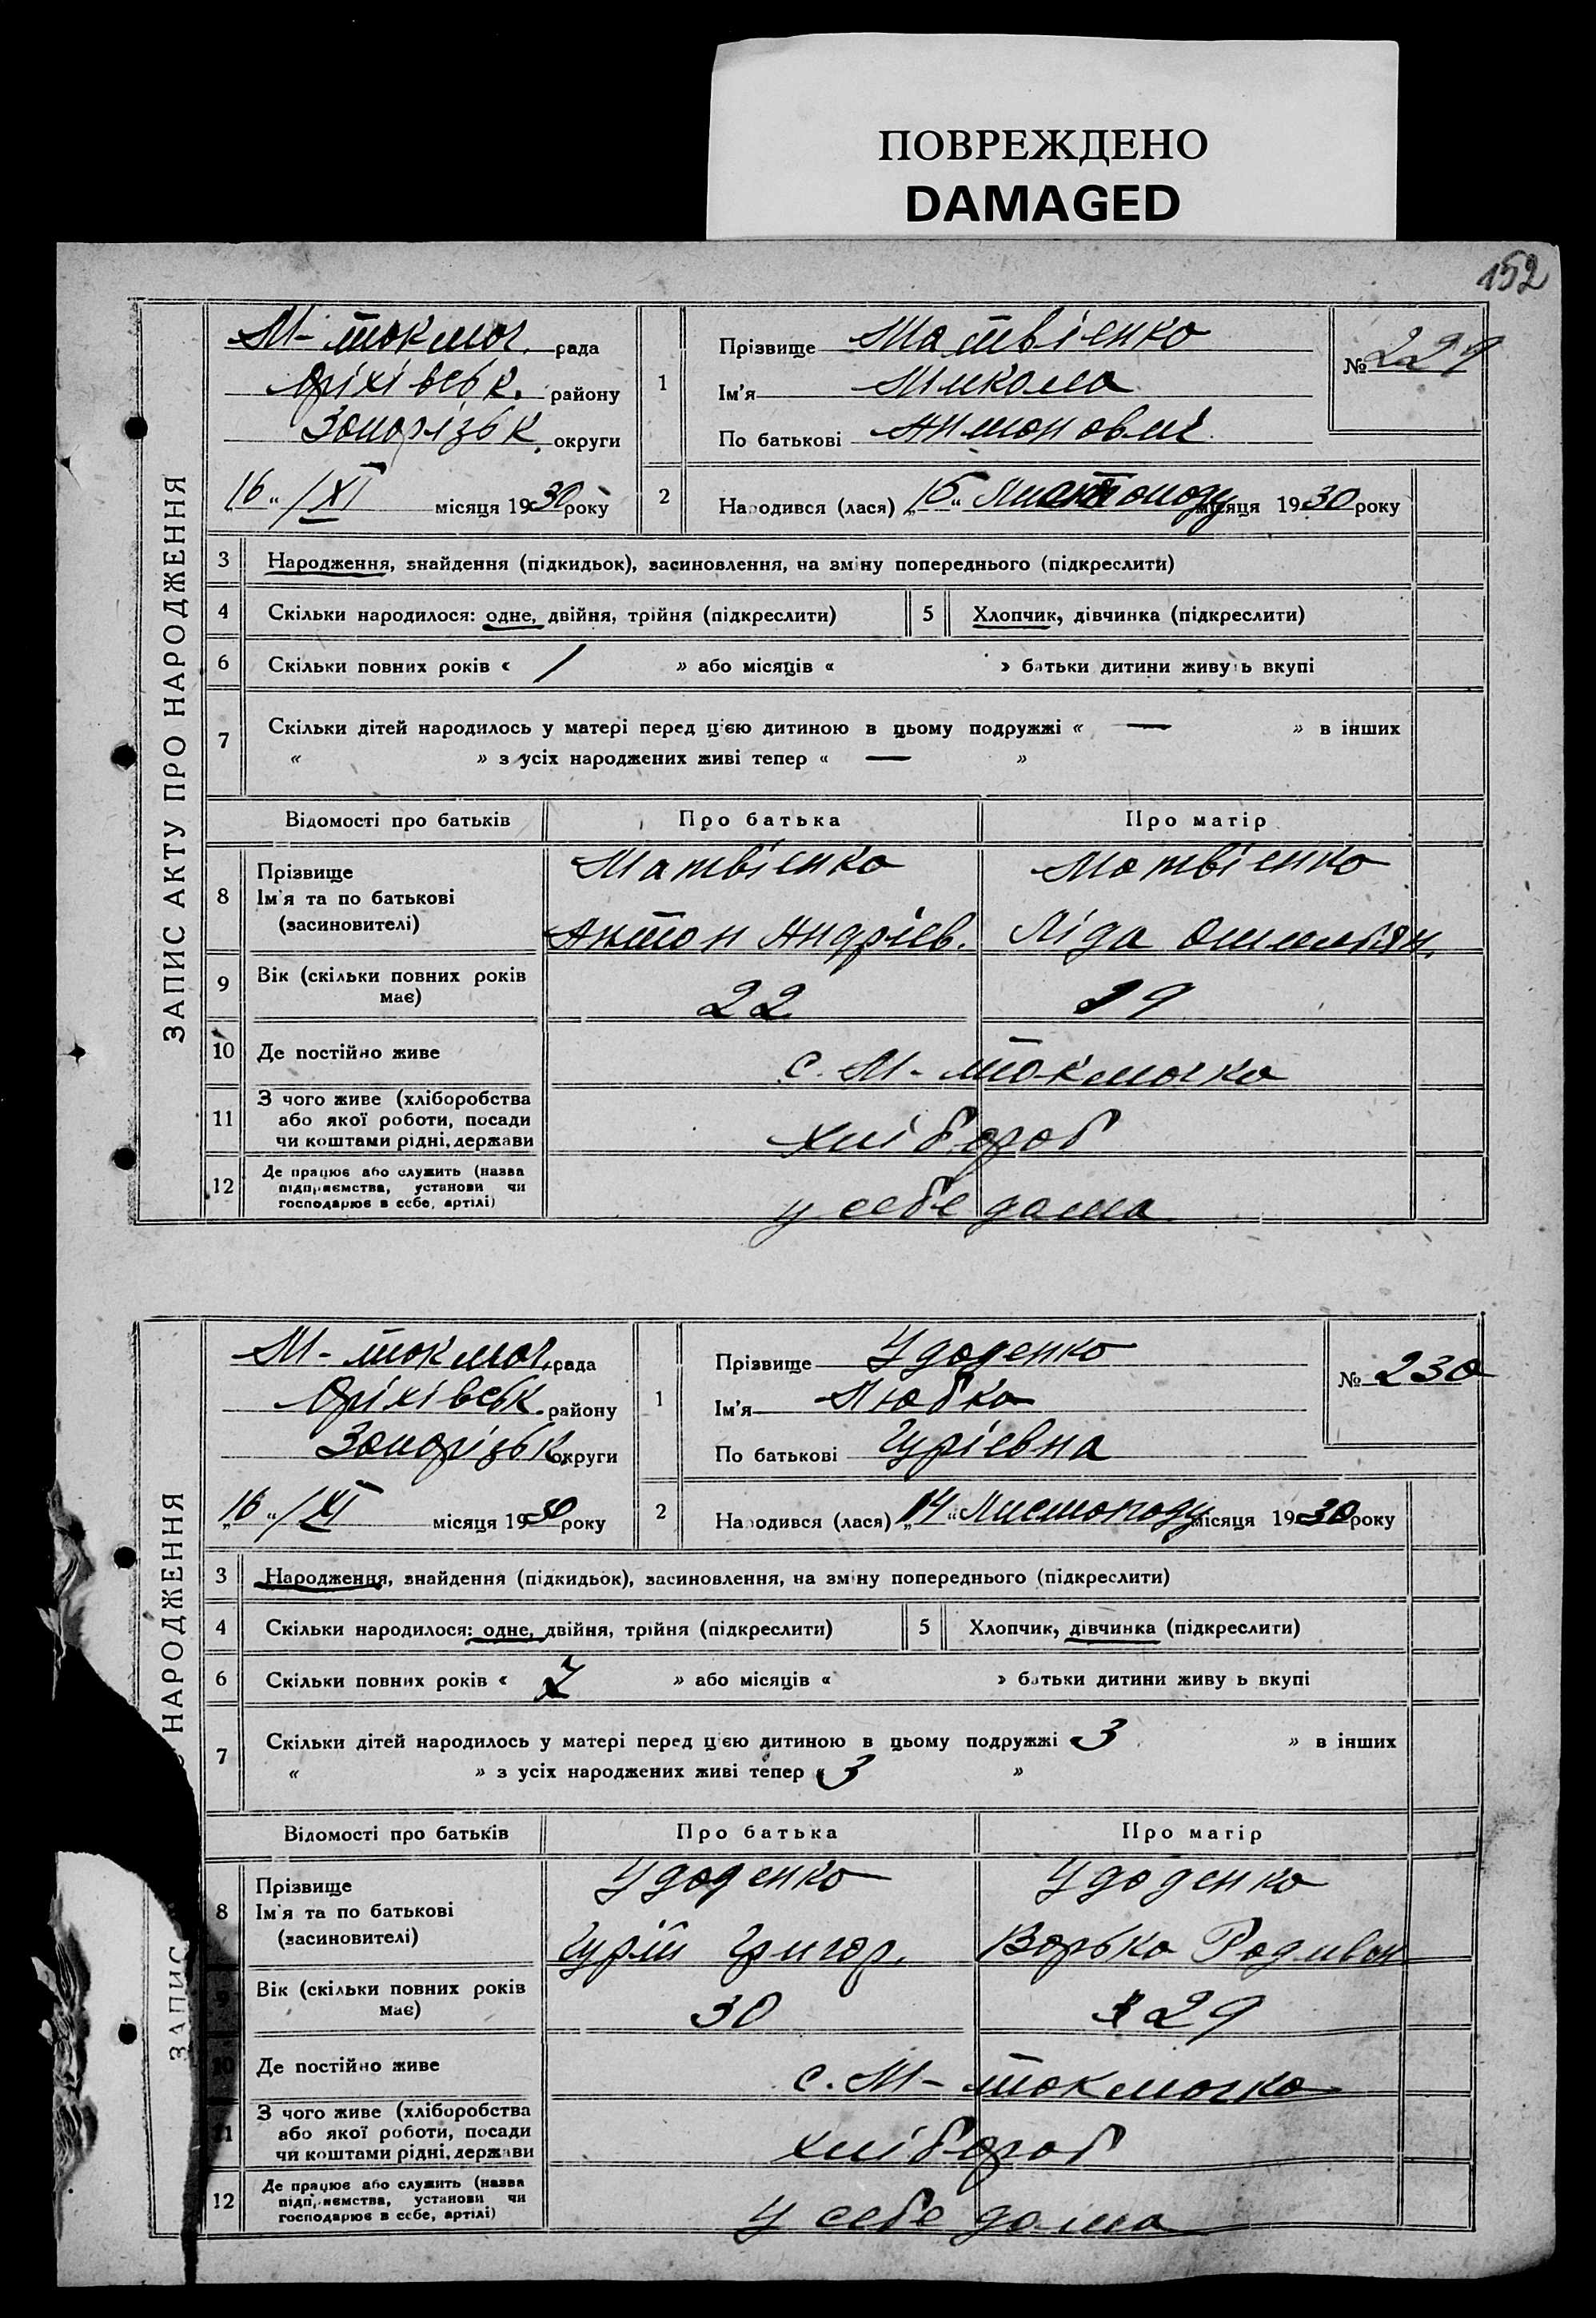 ПОВРЕЖДЕНО
DAMAGED
152
ЗАПИС АКТУ ПРО НАРОДЖЕННЯ
М-токмач. рада
Оріхівськ. району
Запорізьк. округи
16 "/XI місяця 1930 року
1
Прізвище Матвієнко
Ім'я Микола
По батькові Антонович
№ 229
2 Народився (лася) „15" Листопаду місяця 1930 року
3 Народження, знайдення (підкидьок), засиновлення, на зміну попереднього (підкреслити)
4 Скільки народилося: одне, двійня, трійня (підкреслити) 5 Хлопчик, дівчинка (підкреслити)
6 Скільки повних років « 1 » або місяців « » батьки дитини живуть вкупі
7 Скільки дітей народилось у матері перед цією дитиною в цьому подружжі « — » в інших
« » з усіх народжених живі тепер « — »
Відомості про батьків Про батька Про матір
8 Прізвище
Ім'я та по батькові
(засиновителі)
Матвієнко Матвієнко
Антон Андрієв. Ліда
9 Вік (скільки повних років має) 22 19
10 Де постійно живе с. М-токмачка
11 З чого живе (хліборобства
або якої роботи, посади
чи коштами рідні, держави
хлібороб
12 Де працює або служить (назва
підприємства, установи чи
господарює в себе, артілі)
у себе дома
ЗАПИС НАРОДЖЕННЯ
М-токмач. рада
Оріхівськ. району
Запорізьк. округи
„16"/XI місяця 1930 року
1
Прізвище Удоденко
Ім'я Любка
По батькові Гурієвна
№ 230
2 Народився (лася) „14" Листопаду місяця 1930 року
3 Народження, знайдення (підкидьок), засиновлення, на зміну попереднього (підкреслити)
4 Скільки народилося: одне, двійня, трійня (підкреслити) 5 Хлопчик, дівчинка (підкреслити)
6 Скільки повних років « » або місяців « » батьки дитини живу ь вкупі
7 Скільки дітей народилось у матері перед цією дитиною в цьому подружжі « 3 » в інших
« » з усіх народжених живі тепер « 3 »
Відомості про батьків Про батька Про матір
8 Прізвище
Ім'я та по батькові
(засиновителі)
Удоденко Удоденко
Гурій Григор. Варька Родивон
9 Вік (скільки повних років має) 30 29
10 Де постійно живе с. М-токмачка
11 З чого живе (хліборобства
або якої роботи, посади
чи коштами рідні, держави
хлібороб
12 Де працює або служить (назва
підприємства, установи чи
господарює в себе, артілі)
у себе дома